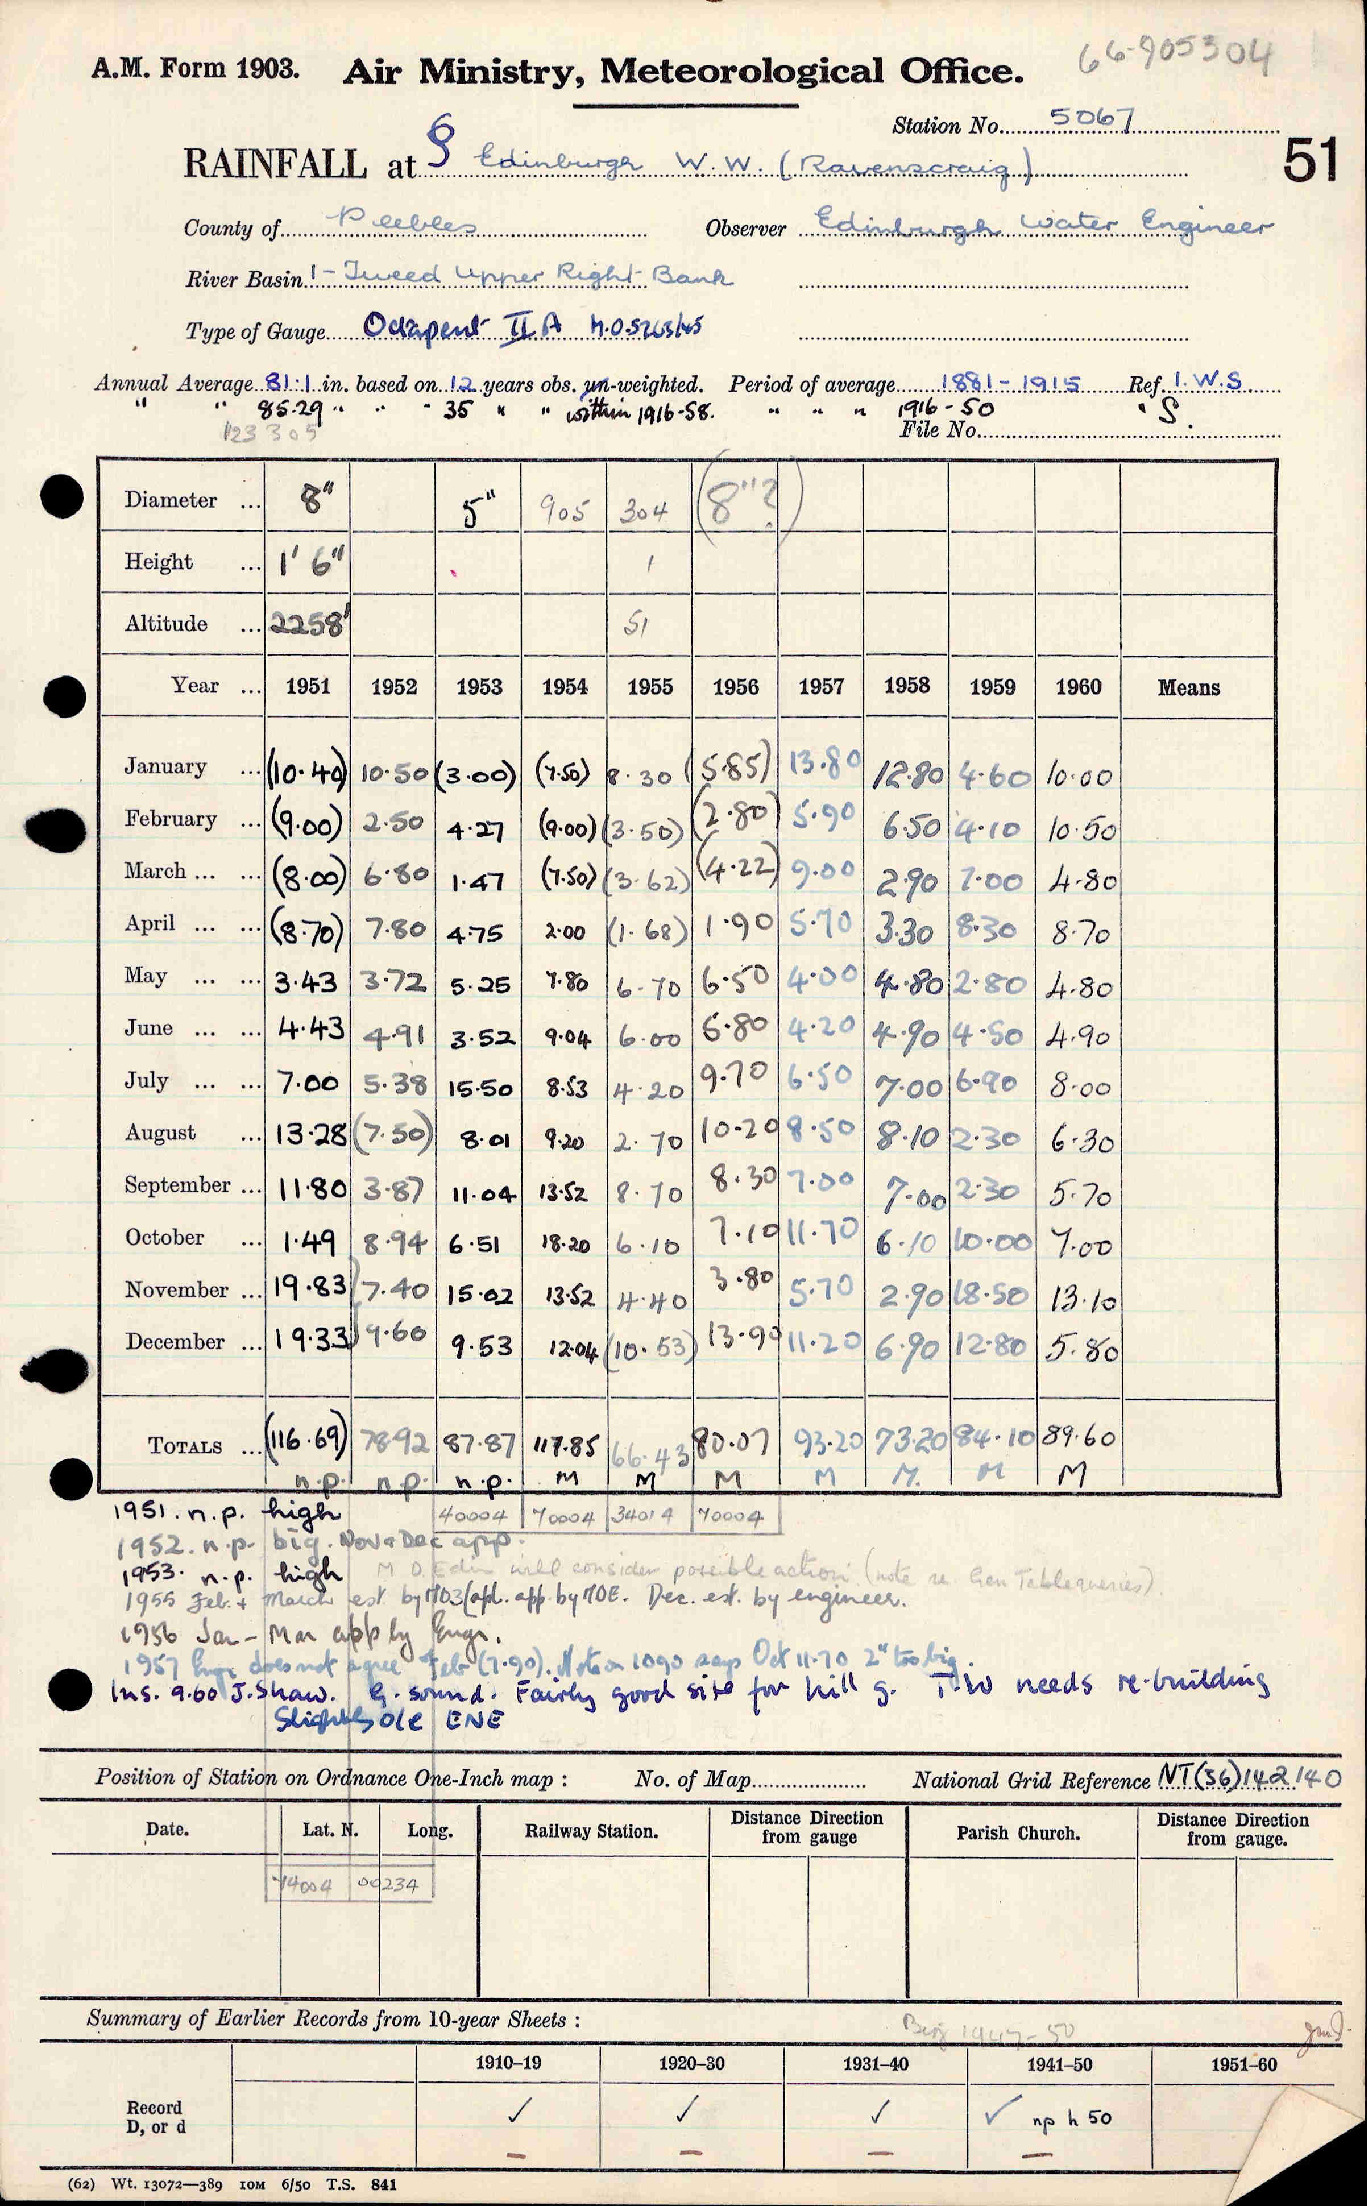 66-905304
A.M. Form 1903. Air Ministry, Meteorological Office.
Station No. 5067
RAINFALL at § Edinburgh W.W. (Ravenscraig)
51
County of Peebles Observer Edinburgh Water Engineer
River Basin 1-Tweed Upper Right Bank
Type of Gauge Octapent II A M.O.5263/45
Annual Average 81.1 in. based on 12 years obs. un-weighted. Period of average 1881-1915 Ref. I.W.S
" " 85.29 " " " 35 " " within 1916-58. " " " 1916-50 " S.
123305
File No.
Diameter ... 8" 5" 905 304 (8"?)
Height ... 1' 6" 1
Altitude ... 2258' 51
Year ... 1951 1952 1953 1954 1955 1956 1957 1958 1959 1960 Means
January ... (10.40) 10.50 (3.00) (7.50) 8.30 (5.85) 13.80 12.80 4.60 10.00
February ... (9.00) 2.50 4.27 (9.00) (3.50) (2.80) 5.90 6.50 4.10 10.50
March ... ... (8.00) 6.80 1.47 (7.50) (3.62) (4.22) 9.00 2.90 7.00 4.80
April ... ... (8.70) 7.80 4.75 2.00 (1.68) 1.90 5.70 3.30 8.30 8.70
May ... ... 3.43 3.72 5.25 7.80 6.70 6.50 4.00 4.80 2.80 4.80
June ... ... 4.43 4.91 3.52 9.04 6.00 5.80 4.20 4.90 4.50 4.90
July ... ... 7.00 5.38 15.50 8.53 4.20 9.70 6.50 7.00 6.90 8.00
August ... 13.28 (7.50) 8.01 9.20 2.70 10.20 8.50 8.10 2.30 6.30
September ... 11.80 3.87 11.04 13.52 8.70 8.30 7.00 7.00 2.30 5.70
October ... 1.49 8.94 6.51 18.20 6.10 7.10 11.70 6.10 10.00 7.00
November ... 19.83 7.40 15.02 13.52 4.40 3.80 5.70 2.90 18.50 13.10
December ... 19.33 9.60 9.53 12.04 (10.53) 13.90 11.20 6.90 12.80 5.80
TOTALS ... (116.69) 78.92 87.87 117.85 66.43 80.07 93.20 73.20 84.10 89.60
n.p. n.p. n.p. M M M M M. M M
1951. n.p. high 40004 70004 34014 70004
1952. n.p. big. Nov & Dec app.
1953. n.p. high M O Edin will consider possible action (note re. Gen Table queries).
1955 Feb. + March est. by MO3 (apl. app by MOE. Dec. est. by engineer.
1956 Jan - Mar app by Engr.
1957 Engr does not agree Feb (7.90). Note on 1090 says Oct 11.70 2" too big.
Ins. 9.60 J.Shaw. G. sound. Fairly good site for hill g. T.W needs re-building
Slightly o/e ENE
Position of Station on Ordnance One-Inch map : No. of Map National Grid Reference NT(36)142140
Date. Lat. N. Long. Railway Station. Distance Direction from gauge Parish Church. Distance Direction from gauge.
14004 00234
Summary of Earlier Records from 10-year Sheets : Big 1947-50
1910-19 1920-30 1931-40 1941-50 1951-60
Record
D, or d ✓ ✓ ✓ ✓ np h 50
(62) Wt. 13072—389 10M 6/50 T.S. 841